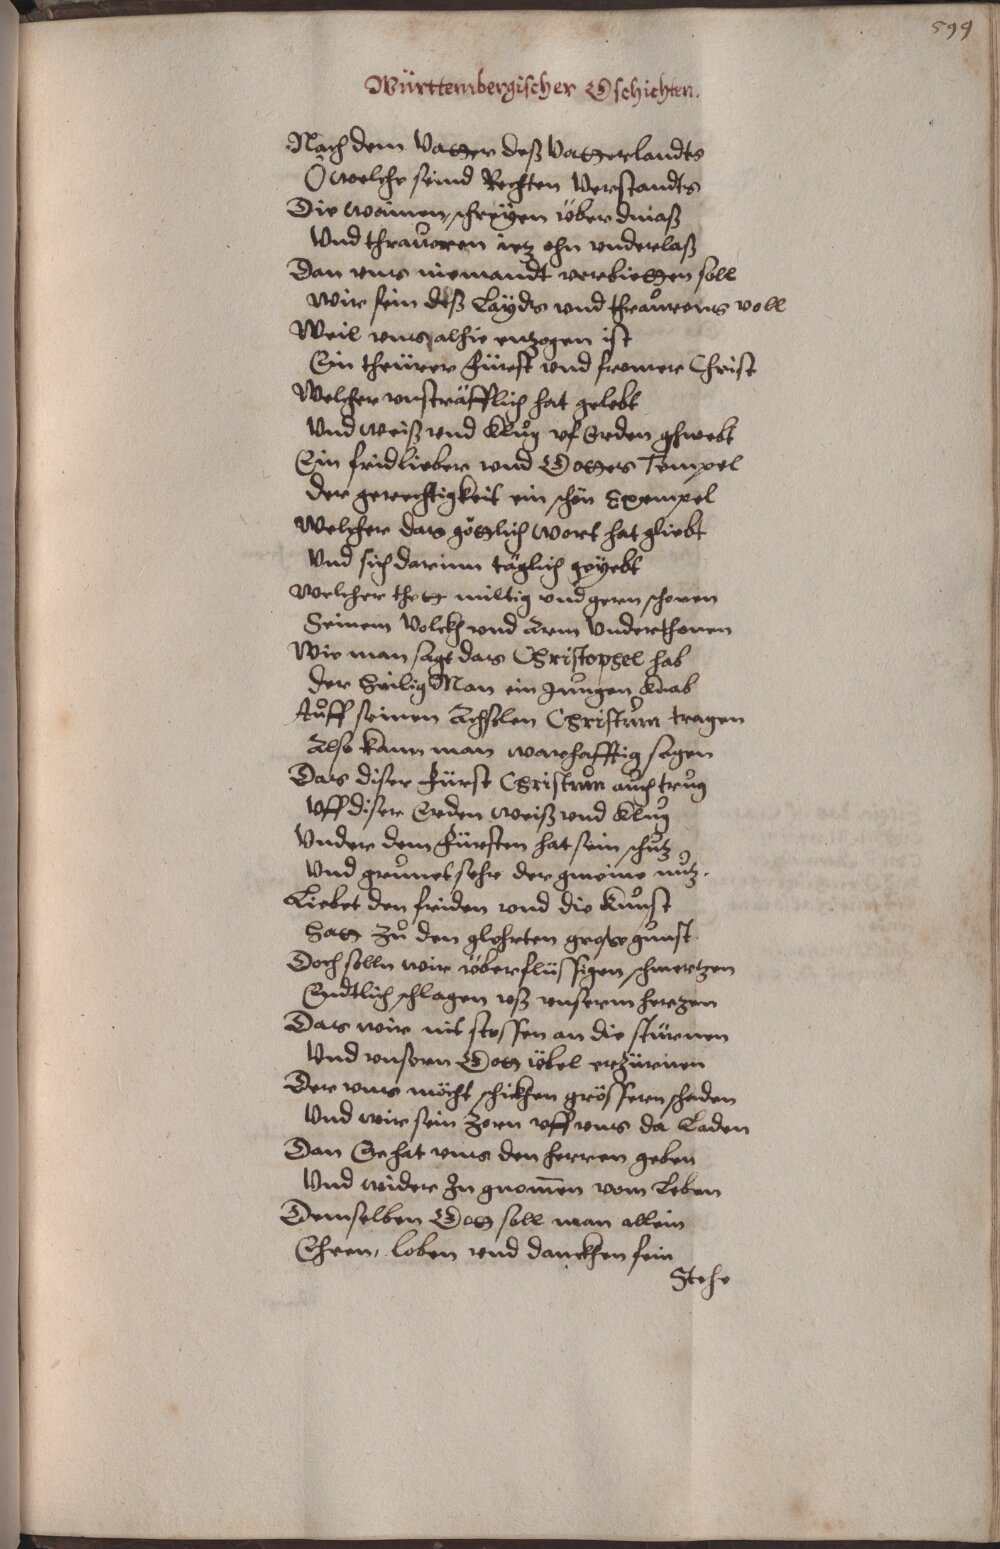 599
Württembergischer Gschichten.
Nach dem Vatter deß Vatterlandts
O welche seind Rechten Verstandts
Die wainen, schreyen über dmaß
Vnd thrauren ietz ohn vnderlaß
Dan vns niemandt verbietten soll
Wir sein deß Layds vnd thraurens voll
Weil vns alhie entzogen ist
Ein theürer Fürst vnd fromer Christ
Welcher vnsträfflich hat gelebt
Vnd weiß vnd Klug vf Erden gschwebt
Ein fridlieber vnd Gottes Tempel
der gerechtigkeit ein schön Exempel
Welcher das göttlich wort hat gliebt
Vnd sich darinn täglich geyebt
Welcher thett miltig vnd gern schonen
Seinem Volckh vnd Arm Vnderthonen
Wie man sagt das Christophel hab
der Heilig Man ein Jungen Knab
Auff seinen Achslen Christum tragen
Also kann man warhafftig sagen
Das diser Fürst Christum auch trug
Vff diser Erden weiß vnd Klug
Vnder dem Fürsten hat sein schutz
Vnd grünet sehr der gmeine nutz.
Liebet den friden vnd die Kunst
Hatt zu den glehrten grosse gunst
Doch solln wir überflüssigen schmertzen
Endtlich schlagen vß vnserm hertzen
Das wir nit stossen an die stürnen
Vnd vnsern Gott übel erzürnen
Der vns möcht schickhen grössern schaden
Vnd wir sein Zorn vff vns da Laden
Dan Er hat vns den Herren geben
Vnd wider Jn gnom̄en vom Leben
Demselben Gott soll man allein
Ehren, loben vnd danckhen fein
Stehe